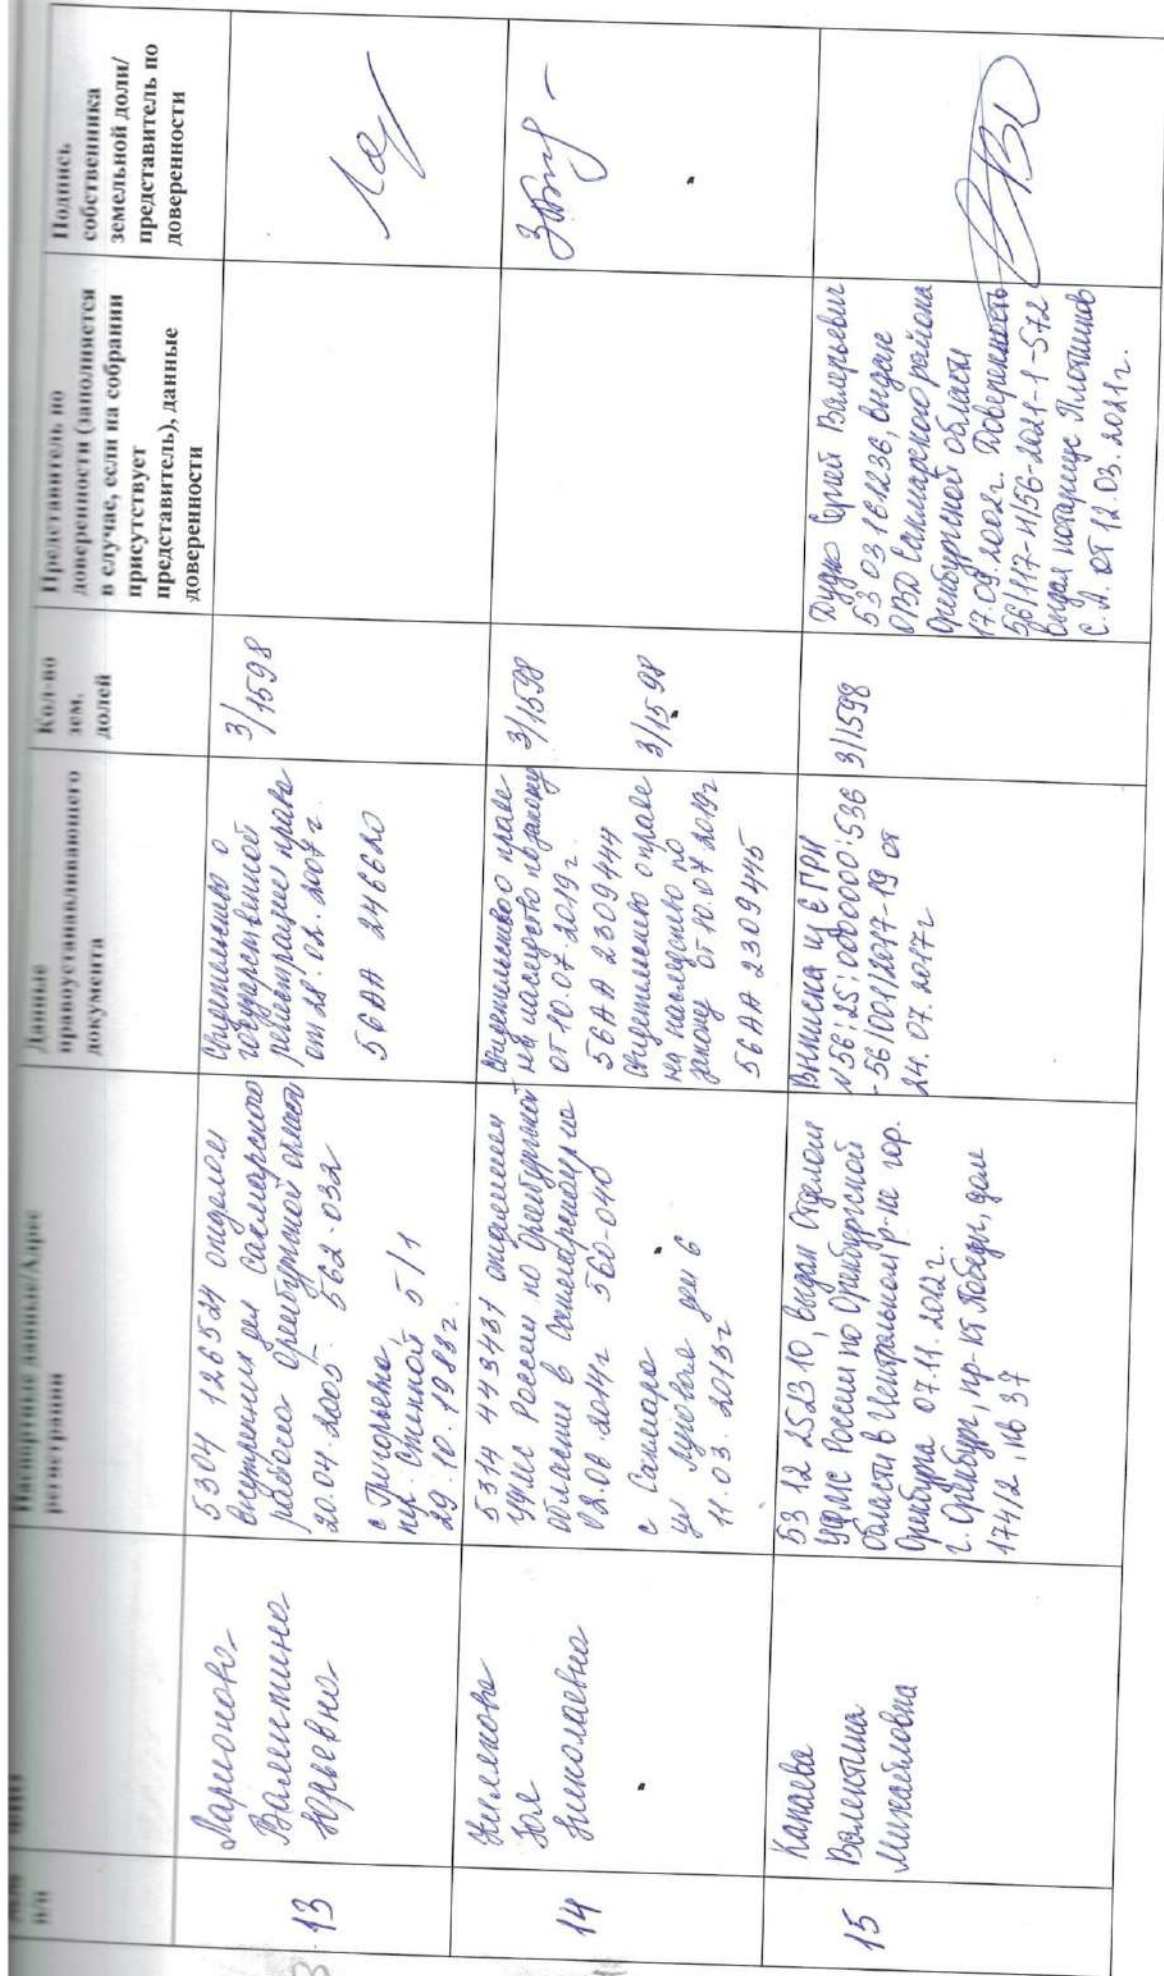 п/п
Паспортные данные/Адрес
регистрации
Данные
правоустанавливающего
документа
Кол-во
зем.
долей
Представитель по
доверенности (заполняется
в случае, если на собрании
присутствует
представитель), данные
доверенности
Подпись
собственника
земельной доли/
представитель по
доверенности
13
Ларионова
Валентина
Юрьевна
5304 126524 отделом
внутренних дел Сакмарского
района Оренбургской области
20.04.2005 562-032
с Григорьевка
пер. Степной 5/1
29.10.1988г.
Свидетельство о
государственной
регистрации права
от 28.02.2007г.
56АА 246620
3/1598
14
Зоя
Николаевна
5314 443431 отделением
УФМС России по Оренбургской
области в Сакмарском р-не
02.08.2014г 560-040
с Сакмара
ул Луговая дом 6
11.03.2013г
Свидетельство о праве
на наследство по закону
от 10.07.2019г.
56АА 2309444
Свидетельство о праве
на наследство по
закону от 10.07.2019г
56АА 2309445
3/1598
3/1598
15
Капаева
Валентина
Михайловна
53 12 252310, выдан Отделом
УФМС России по Оренбургской
области в Центральном р-не гор.
Оренбурга 07.11.2012г.
г. Оренбург, пр-кт Победы, дом
174/2, кв 37
Выписка из ЕГРН
№56:25:0000000:536
-56/001/2017-19 от
24.07.2017г
3/1598
Дудко Сергей Валерьевич
53 03 161236, выдан
ОВД Сакмарского района
Оренбургской области
17.09.2002г. Доверенность
56/117-н/56-2021-1-572
выдал нотариус Плотников
С.А. от 12.03.2021г.